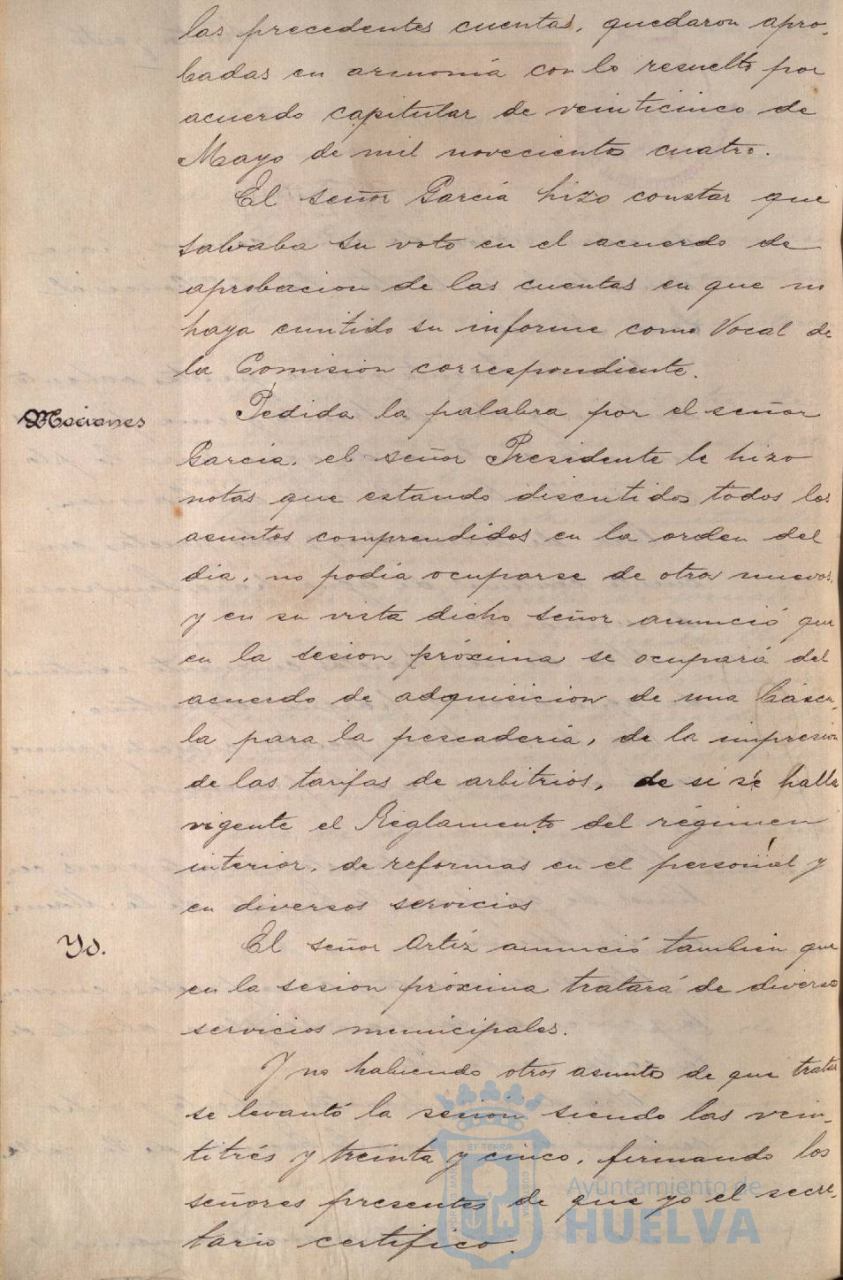 las precedentes cuentas, quedaron apro-
badas en armonía con lo resuelto por
acuerdo capitular de veinticinco de
Mayo de mil novecientos cuatro.
El señor García hizo constar que
salvaba su voto en el acuerdo de
aprobacion de las cuentas en que no
haya emitido su informe como Vocal de
la Comision correspondiente.
Mociones
Pedida la palabra por el señor
García, el señor Presidente le hizo
notar que estando discutidos todos los
asuntos comprendidos en la orden del
dia, no podía ocuparse de otros nuevos,
y en su vista dicho señor anunció que
en la sesion próxima se ocupará del
acuerdo de adquisicion de una báscu-
la para la pescadería, de la impresion
de las tarifas de arbitrios, de si se halla
vigente el Reglamento del régimen
interior, de reformas en el personal y
en diversos servicios
Yd.
El señor Ortíz anunció tambien que
en la sesion próxima tratará de diversos
servicios municipales.
Y no habiendo otros asuntos de que tratar
se levantó la sesion siendo las vein-
titrés y treinta y cinco, firmando los
señores presentes de que yo el secre-
tario certifico.
Ayuntamiento de
HUELVA